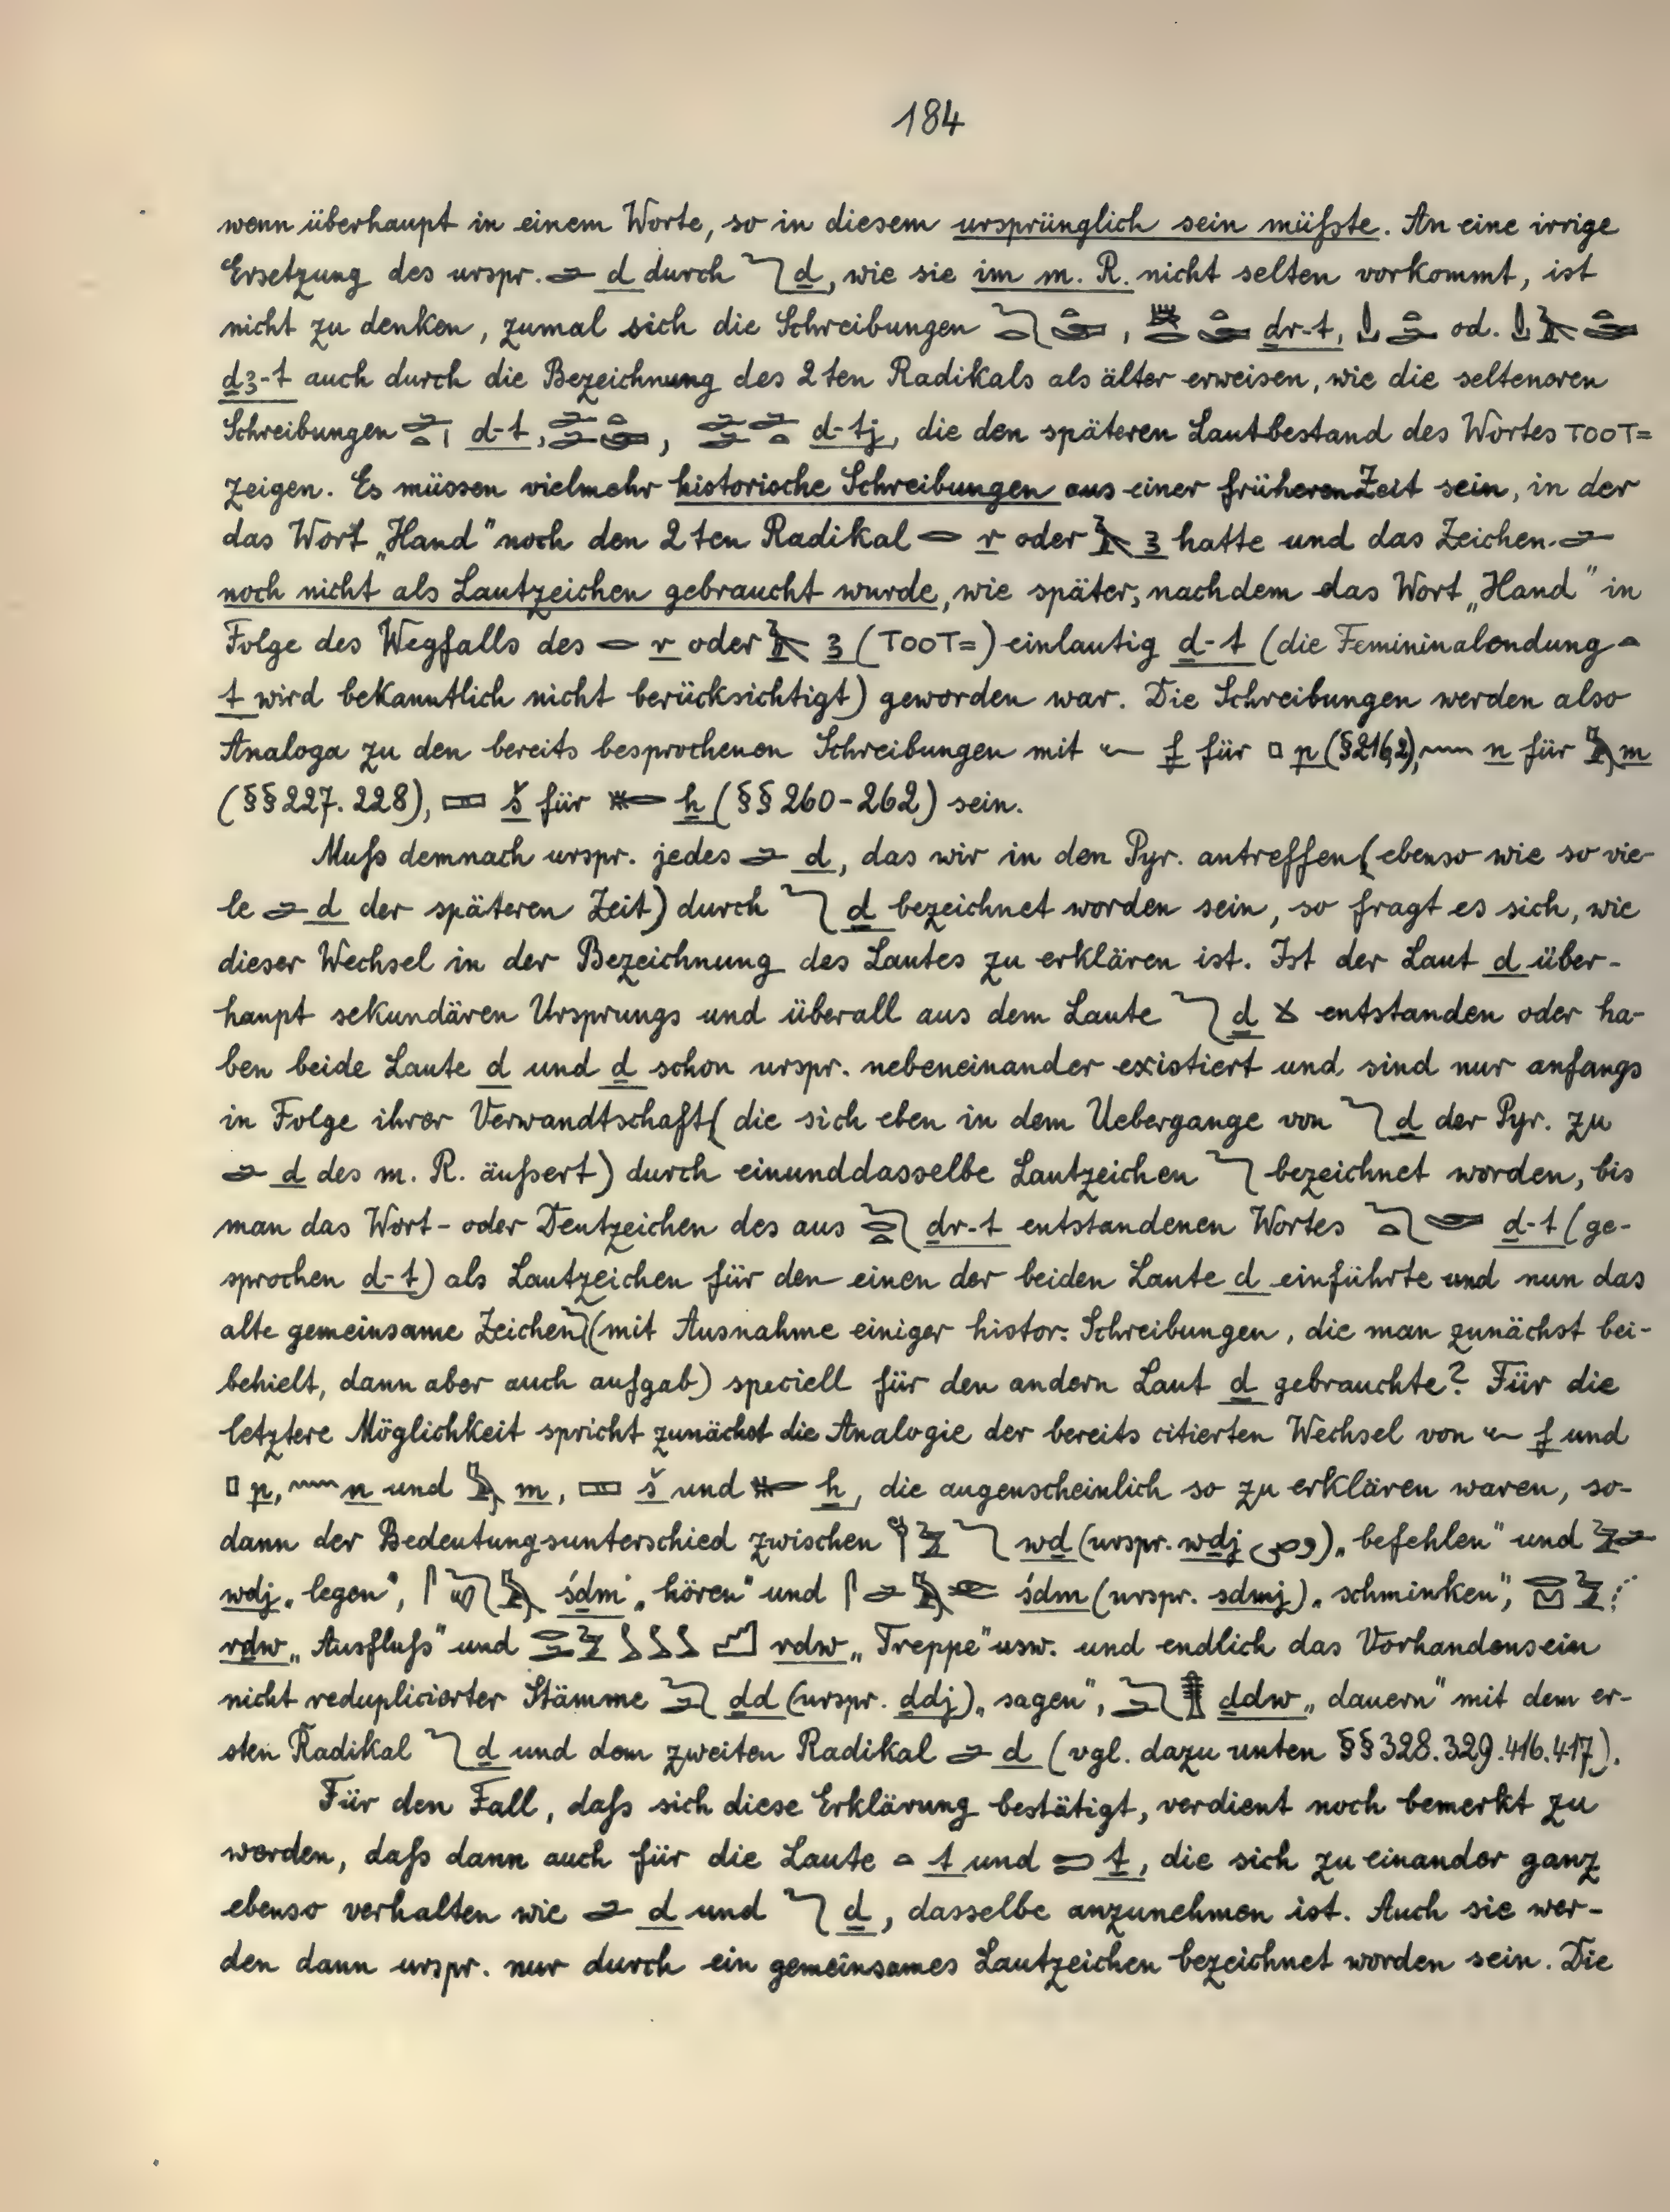 184
wenn überhaupt in einem Worte, so in diesem ursprünglich sein müßste. An eine irrige
Ersetzung des urspr. 𓂧 d durch 𓆓 ḏ, wie sie im m. R. nicht selten vorkommt, ist
nicht zu denken, zumal sich die Schreibungen dr-t, od.
ḏꜣ-t auch durch die Bezeichnung des 2ten Radikals als älter erweisen, wie die selteneren
Schreibungen d-t, d-tj, die den späteren Lautbestand des Wortes ⲦⲞⲞⲦ=
zeigen. Es müssen vielmehr historische Schreibungen aus einer früheren Zeit sein, in der
das Wort „Hand" noch den 2ten Radikal 𓂋 r oder 𓄿 ꜣ hatte und das Zeichen 𓂧
noch nicht als Lautzeichen gebraucht wurde, wie später, nachdem das Wort „Hand" in
Folge des Wegfalls des 𓂋 r oder 𓄿 ꜣ (ⲦⲞⲞⲦ=) einlautig ḏ-t (die Femininalendung 𓏏
t wird bekanntlich nicht berücksichtigt) geworden war. Die Schreibungen werden also
Analoga zu den bereits besprochenen Schreibungen mit 𓆑 f für 𓊪 p (§216,2), 𓈖 n für 𓅓 m
(§§ 227. 228), 𓈙 š für 𓄡 ẖ (§§ 260-262) sein.
Muß demnach urspr. jedes 𓂧 d, das wir in den Pyr. antreffen (ebenso wie so vie-
le 𓂧 d der späteren Zeit) durch 𓆓 ḏ bezeichnet worden sein, so fragt es sich, wie
dieser Wechsel in der Bezeichnung des Lautes zu erklären ist. Ist der Laut d über-
haupt sekundären Ursprungs und überall aus dem Laute 𓆓 ḏ entstanden oder ha-
ben beide Laute d und ḏ schon urspr. nebeneinander existiert und sind nur anfangs
in Folge ihrer Verwandtschaft (die sich eben in dem Uebergange von 𓆓 ḏ der Pyr. zu
𓂧 d des m. R. äußert) durch einunddasselbe Lautzeichen 𓆓 bezeichnet worden, bis
man das Wort- oder Deutzeichen des aus ḏr-t entstandenen Wortes ḏ-t (ge-
sprochen d-t) als Lautzeichen für den einen der beiden Laute d einführte und nun das
alte gemeinsame Zeichen 𓆓 (mit Ausnahme einiger histor. Schreibungen, die man zunächst bei-
behielt, dann aber auch aufgab) speciell für den andern Laut ḏ gebrauchte? Für die
letztere Möglichkeit spricht zunächst die Analogie der bereits citierten Wechsel von 𓆑 f und
𓊪 p, 𓈖 n und 𓅓 m, 𓈙 š und 𓄡 ẖ, die augenscheinlich so zu erklären waren, so-
dann der Bedeutungsunterschied zwischen wḏ (urspr. wḏj وصى) „befehlen" und
wdj „legen", śḏm „hören" und śdm (urspr. sdmj) „schminken",
rḏw „Ausfluß" und rdw „Treppe" usw. und endlich das Vorhandensein
nicht reduplicierter Stämme ḏd (urspr. ḏdj) „sagen", ḏdw „dauern" mit dem er-
sten Radikal 𓆓 ḏ und dem zweiten Radikal 𓂧 d (vgl. dazu unten §§ 328. 329. 416. 417).
Für den Fall, daß sich diese Erklärung bestätigt, verdient noch bemerkt zu
werden, daß dann auch für die Laute 𓏏 t und 𓍿 ṯ, die sich zu einander ganz
ebenso verhalten wie 𓂧 d und 𓆓 ḏ, dasselbe anzunehmen ist. Auch sie wer-
den dann urspr. nur durch ein gemeinsames Lautzeichen bezeichnet worden sein. Die